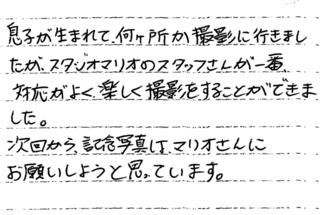 息子が生まれて、何ヶ所か撮影に行きまし
たが、スタジオマリオのスタッフさんが一番、
対応がよく、楽しく撮影をすることができま
した。
次回から、記念写真は、マリオさんに
お願いしようと思っています。